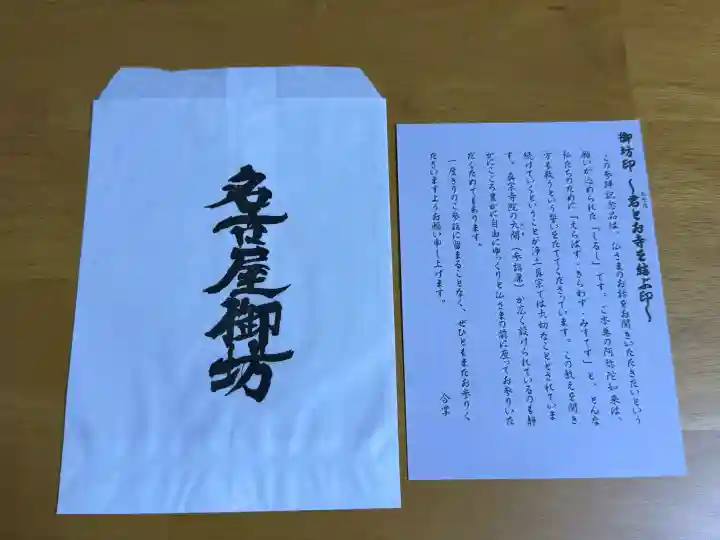 名古屋御坊
御坊印 〜君とお寺を結ぶ印〜
この参拝記念品は、仏さまのお話をお聞きいただきたいという
願いが込められた「しるし」です。ご本尊の阿弥陀如来は、
私たちのために「えらばず・きらわず・みすてず」と、どんな
方も救うという誓いをたててくださっています。この教えを聞き
続けていくということが浄土真宗では大切なこととされていま
す。真宗寺院の外陣(参詣席)が広く設けられているのも静
かにこころ豊かに自由にゆっくりと仏さまの前に座ってお参りいた
だくためでもあります。
一度きりのご参詣に留まることなく、ぜひともまたお参りく
ださいますようお願い申し上げます。
合掌